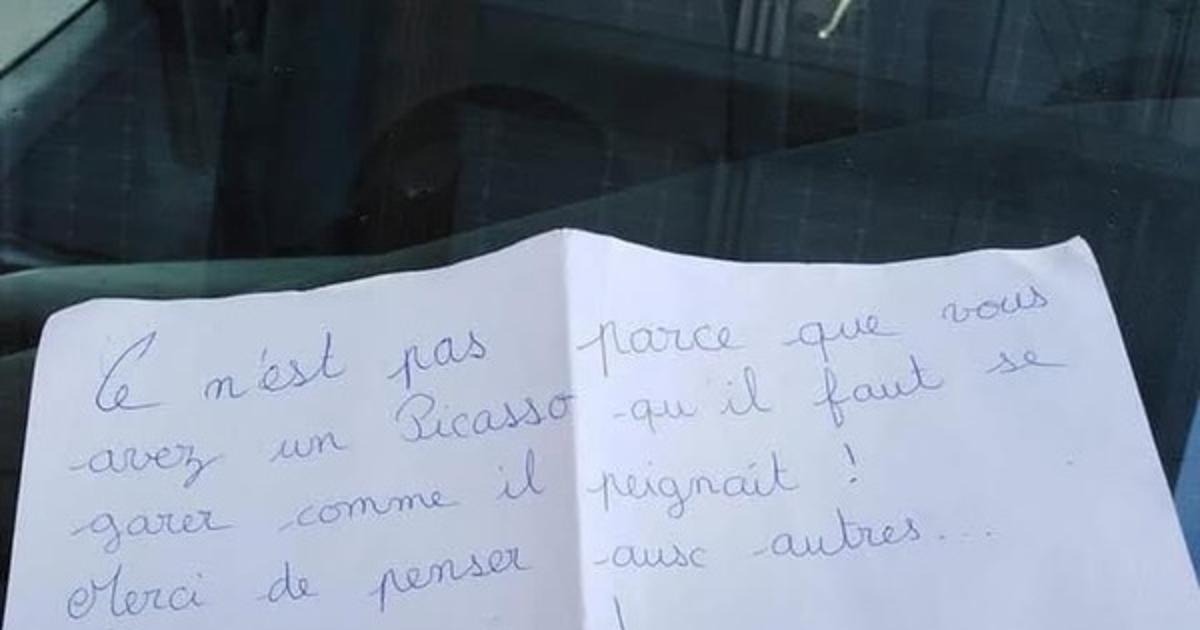 Ce n'est pas parce que vous
avez un Picasso qu'il faut se
garer comme il peignait !
Merci de penser aux autres...